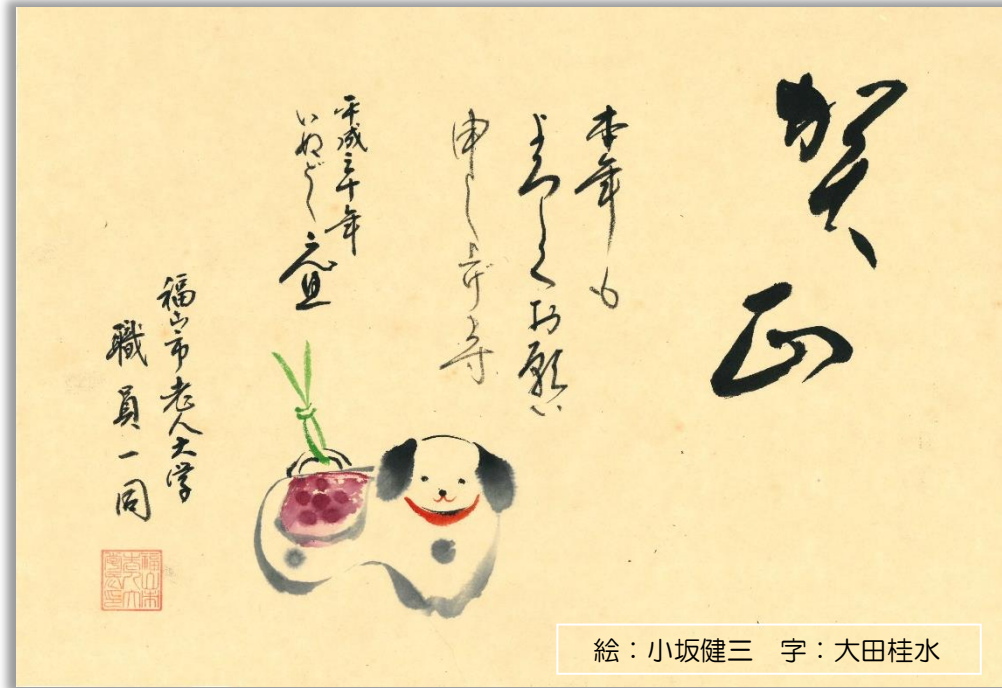 賀正
本年も
よろしくお願い
申し上げます
平成三十年
いぬどし元旦
福山市老人大学
職員一同
絵：小坂健三　字：大田桂水